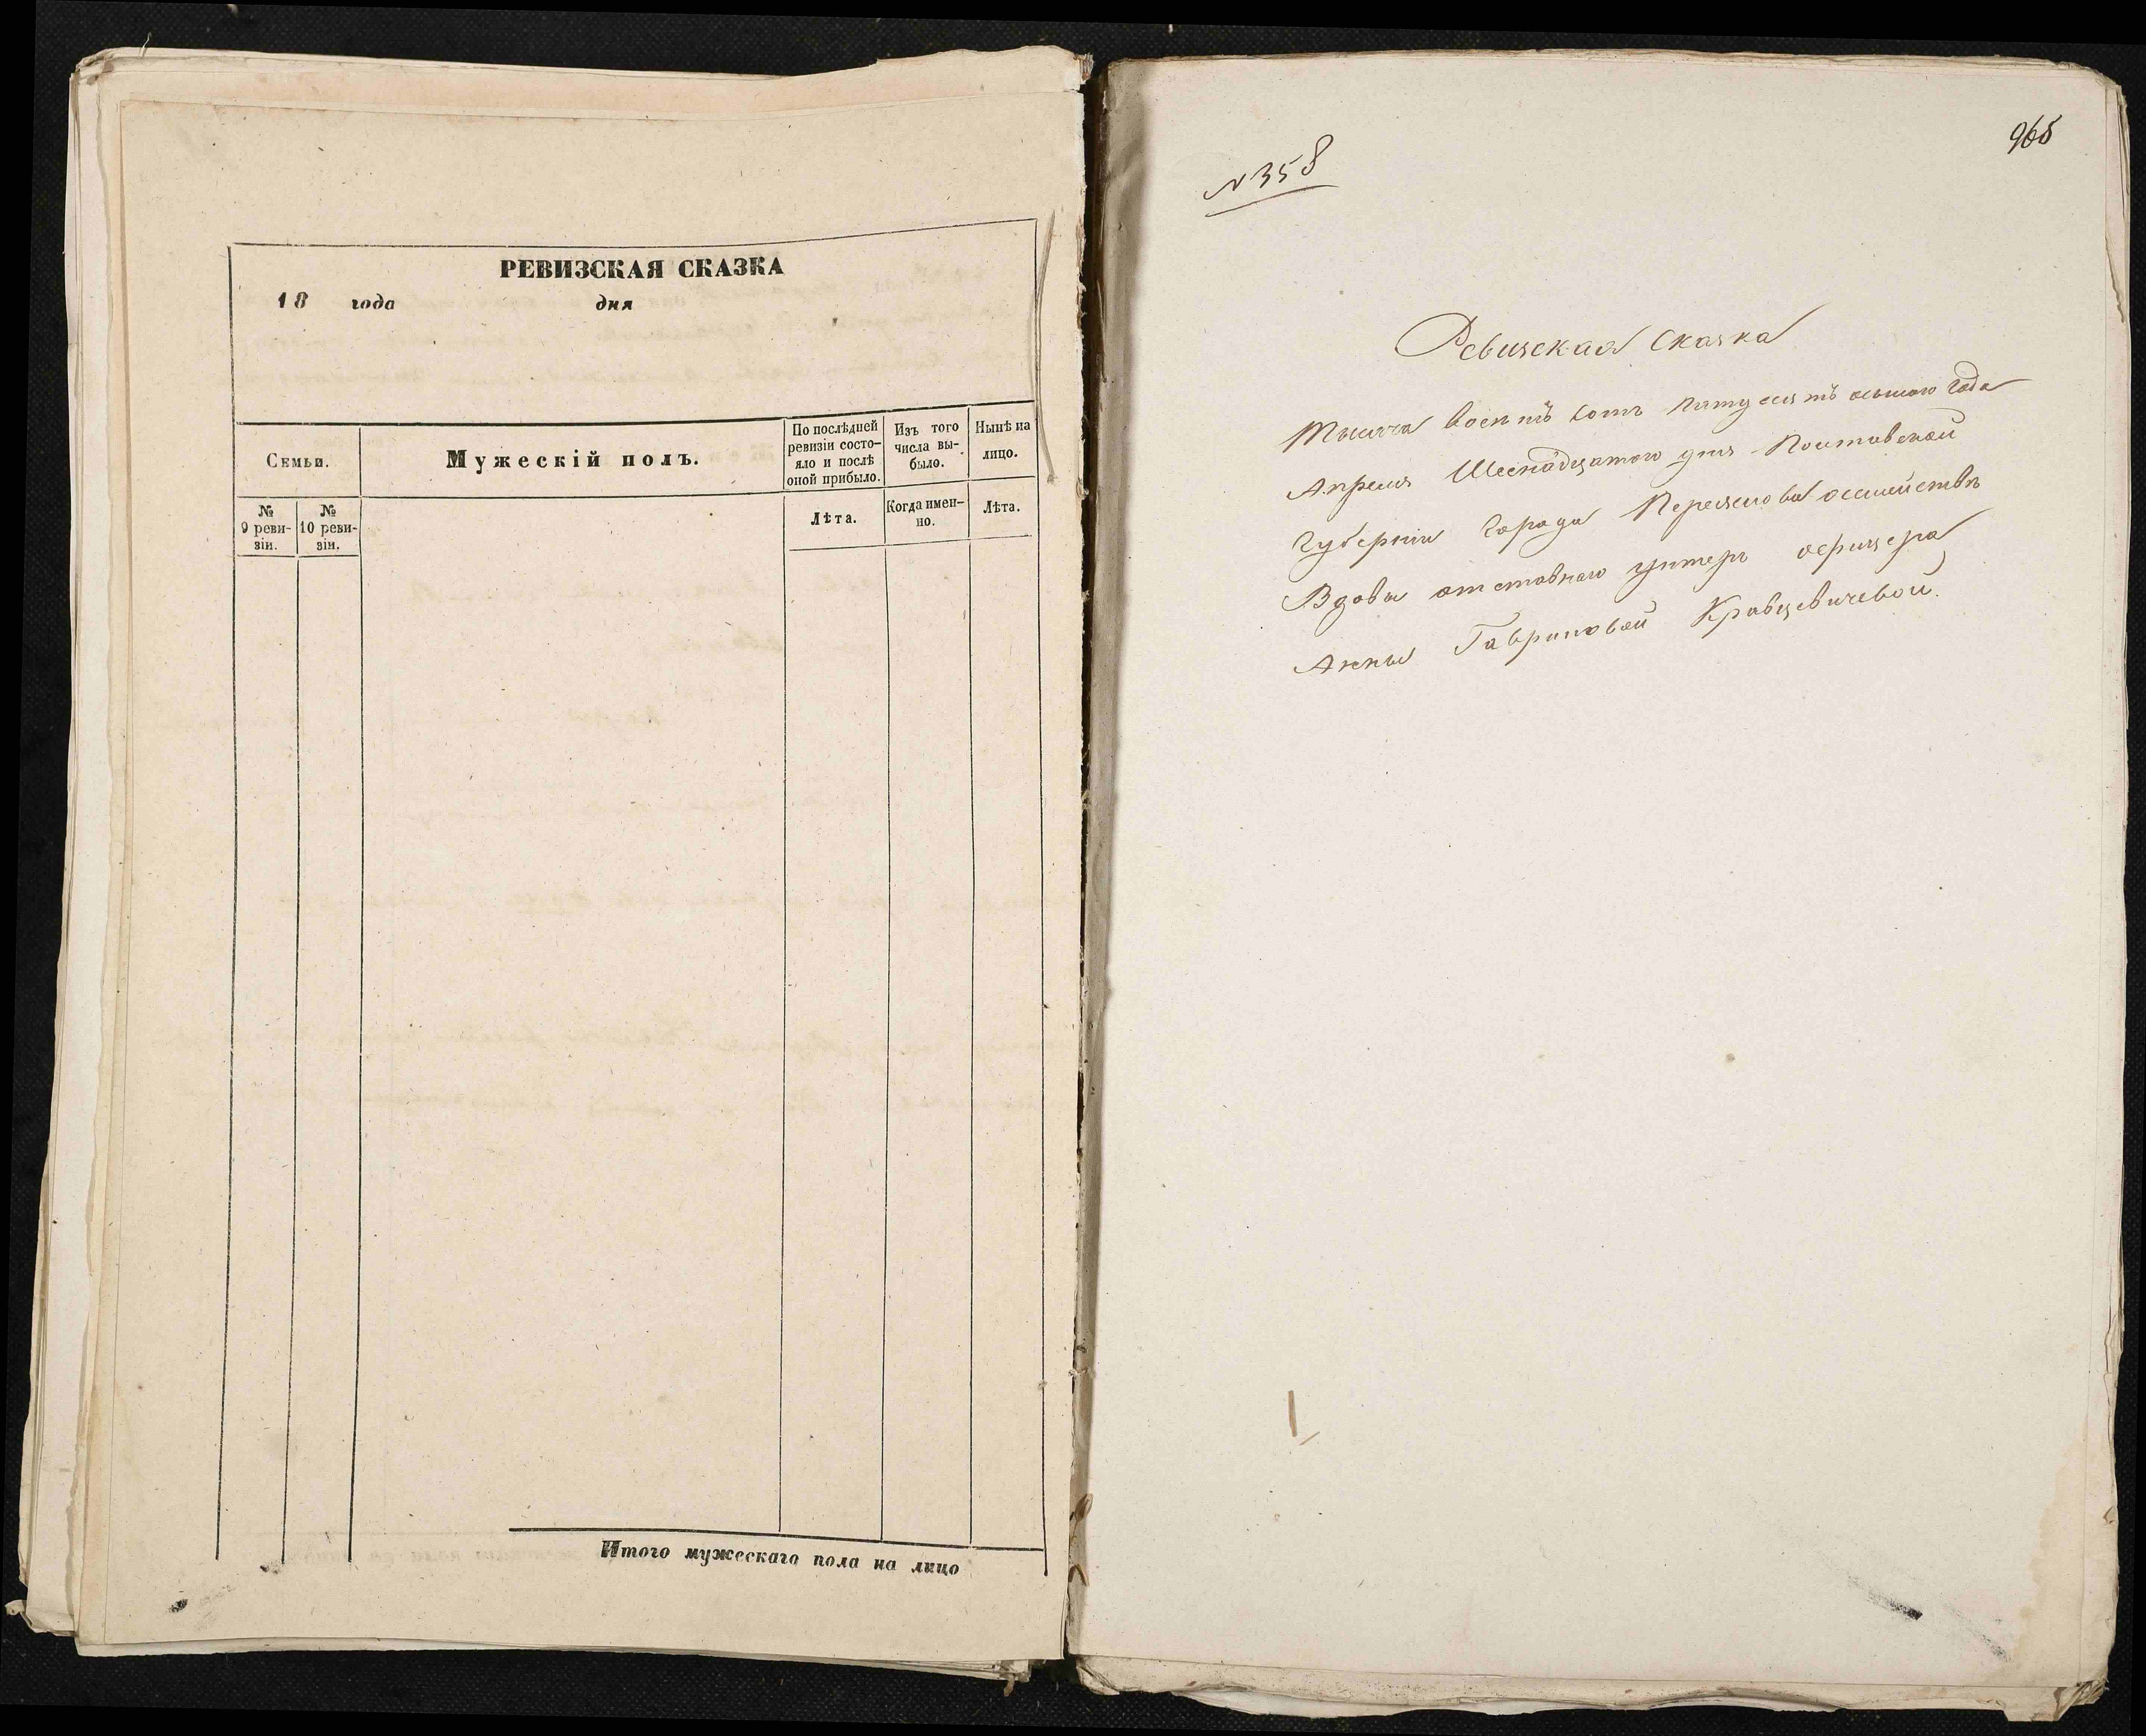 РЕВИЗСКАЯ СКАЗКА
18 года дня
Семьи.
Мужескій полъ.
По послѣдней
ревизіи состо-
яло и послѣ
оной прибыло.
Изъ того
числа вы-
было.
Нынѣ на
лицо.
№
9 реви-
зіи.
№
10 реви-
зіи.
Лѣта.
Когда имен-
но.
Лѣта.
Итого мужескаго пола на лицо
965
N 358
Ревизская сказка
Тысяча восемъ сотъ пятдесятъ осьмаго года
Апреля Шеснадцатого дня Полтавской
Губерніи города Переяслова осемействѣ
Вдовы отставнаго унтеръ офицера
Анны Гавриловой Кравцевичевой.